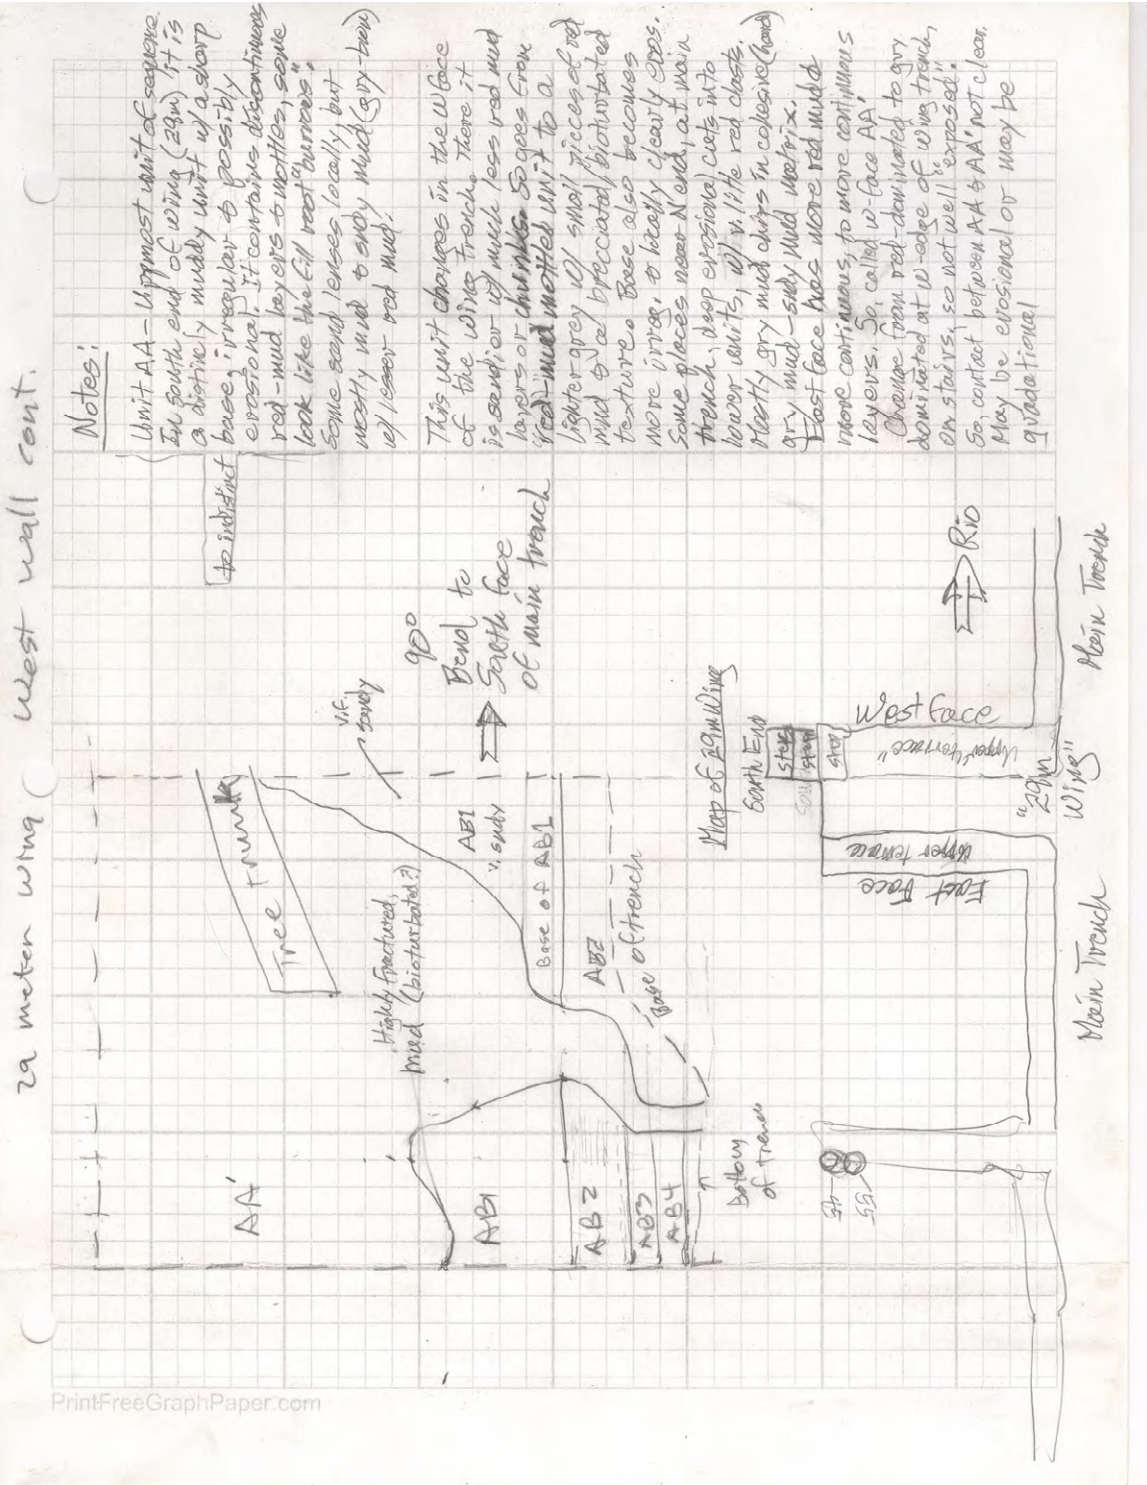 29 meter wing West wall cont.
Notes:
Unit AA - Upmost unit of sequence
In south end of wing (29m) it is
a distinctly muddy unit w/ a sharp
base, irregular to possibly
erosional. It contains discontinuous
red-mud layers to mottles, some
look like the fill root "burrows".
Some sand lenses locally but
mostly mud to sndy mud (gry-brn)
w/ lesser red mud.
This unit changes in the W face
of the wing trench. There it
is sandier w/ much less red mud
layers or chunks. So goes from
"red-mud mottled unit to a
lighter grey w/ small pieces of red
mud &
brecciated/bioturbated
texture. Base also becomes
more irreg. to locally clearly eros.
Some places near N end, at main
trench, deep erosional cuts into
lower units, w/ v. little red clasts.
Mostly gry mud chips in cohesive (hard)
gry mud-sndy mud matrix.
East face has more red mud &
more continuous, to more continuous
layers. So, called w-face AA'
Change from red-dominated to gry
dominated at w-edge of wing trench,
on stairs, so not well "exposed".
So, contact between AA & AA' not clear.
May be erosional or may be
gradational
to indistinct
Tree trunk
v.f.
sandy
90°
Bend to
South face
of main trench
AA'
Highly fractured,
mud (bioturbated?)
AB1
v. sndy
Base of AB1
AB2
Base of trench
AB1
AB2
AB3
AB4
Bottom
of trench
Map of 29m Wing
South End
step
step
step
West face
Upper "terrace"
"29m
Wing"
Upper terrace
East Face
Rio
Main Trench
Main Trench
PrintFreeGraphPaper.com